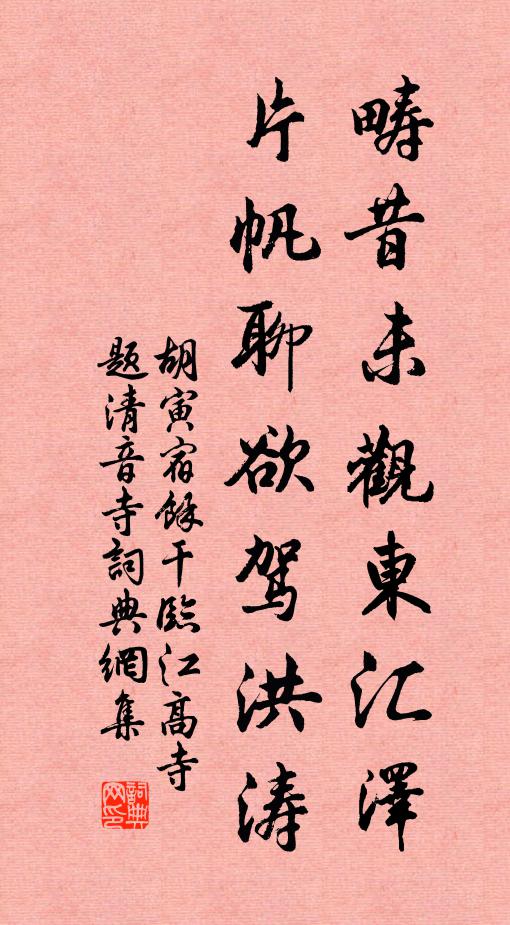 畴昔未觀東汇澤
片帆聊欲驾洪涛
胡寅宿餘干臨江高寺
题清音寺詞典網集
詞典网印